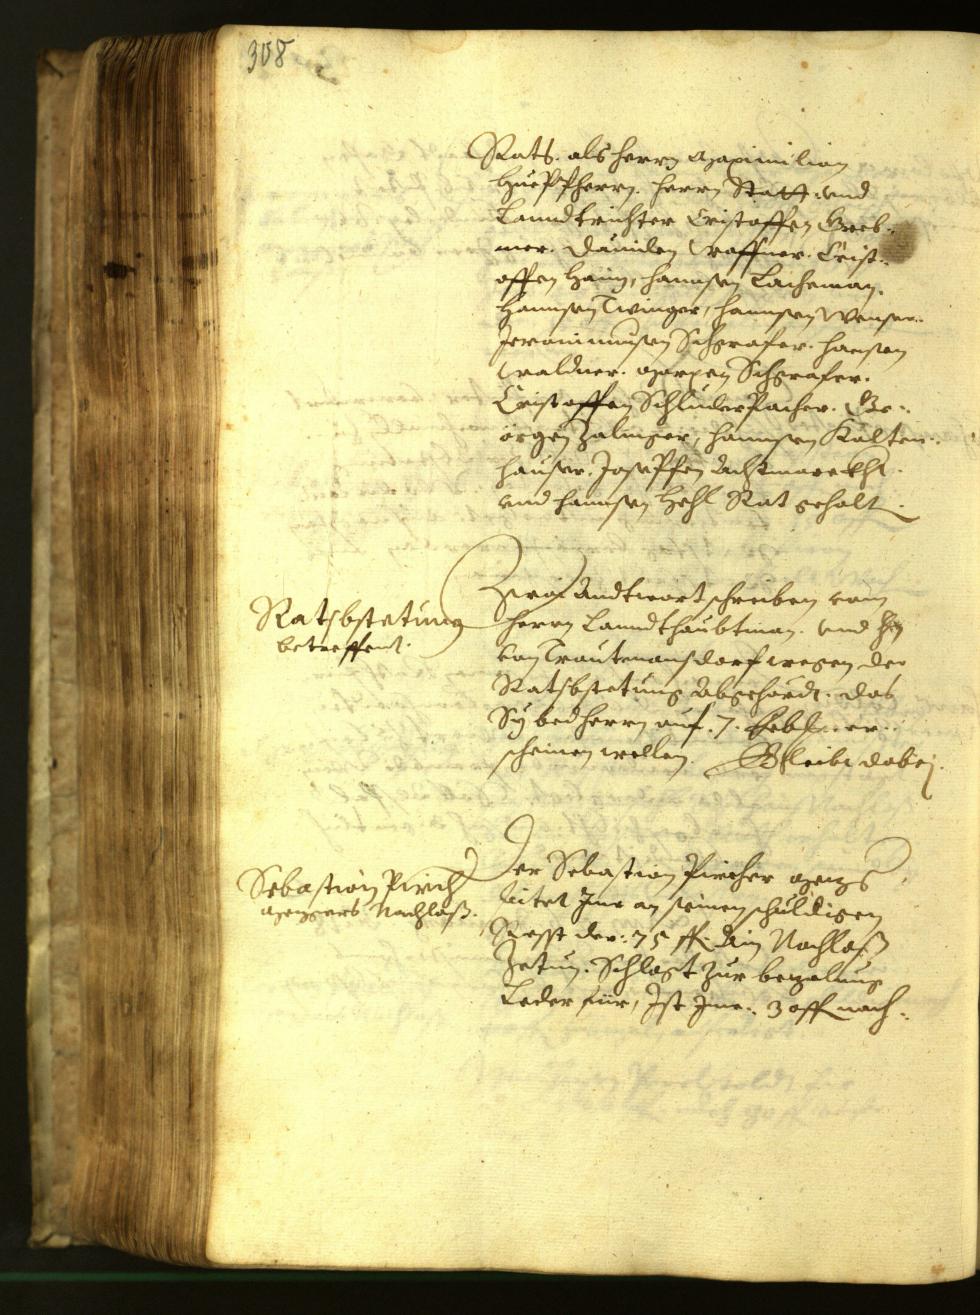 308
Rats. als herrn Maximilian
Hueppherrn. herrn Statt vnd
Lanndtrichter Cristoffen Greb¬
mer. Däniln Graffner. Crist¬
offen Haim, hannsen Lacheman,
Hannsen Zwinger, hannsen Wenser
Jeronimusen Schgrafer. hansen
Waldner. Marxen Schgrafer.
Cristoffen Schluderpacher. Ge¬
örgen Zalinger, hannsen Kalten¬
hauser. Joseffen Achtmarckht.
vnd hannsen Hehl Rat gehalt.
Ratsbstetung
betreffent.
Zwai Anndtwort schreiben vom
herrn Lanndthaubtman. vnd Hn
von Trautmansdorf wegen der
Ratsbstetung Abgehördt. das
Sy bed herrn auf. 7. Febr. er¬
scheinen wellen. Bleibt dabej.
Sebastian Pirch
Mezgers Nachlaß.
Der Sebastian Pircher Mezg
bitet Ime an seinem schuldigen
Resst der: 75 ff. Ain Nachlaß
Zetun. Schlagt zur bezalung
Leder für, Ist Ime: 30 ff nach¬